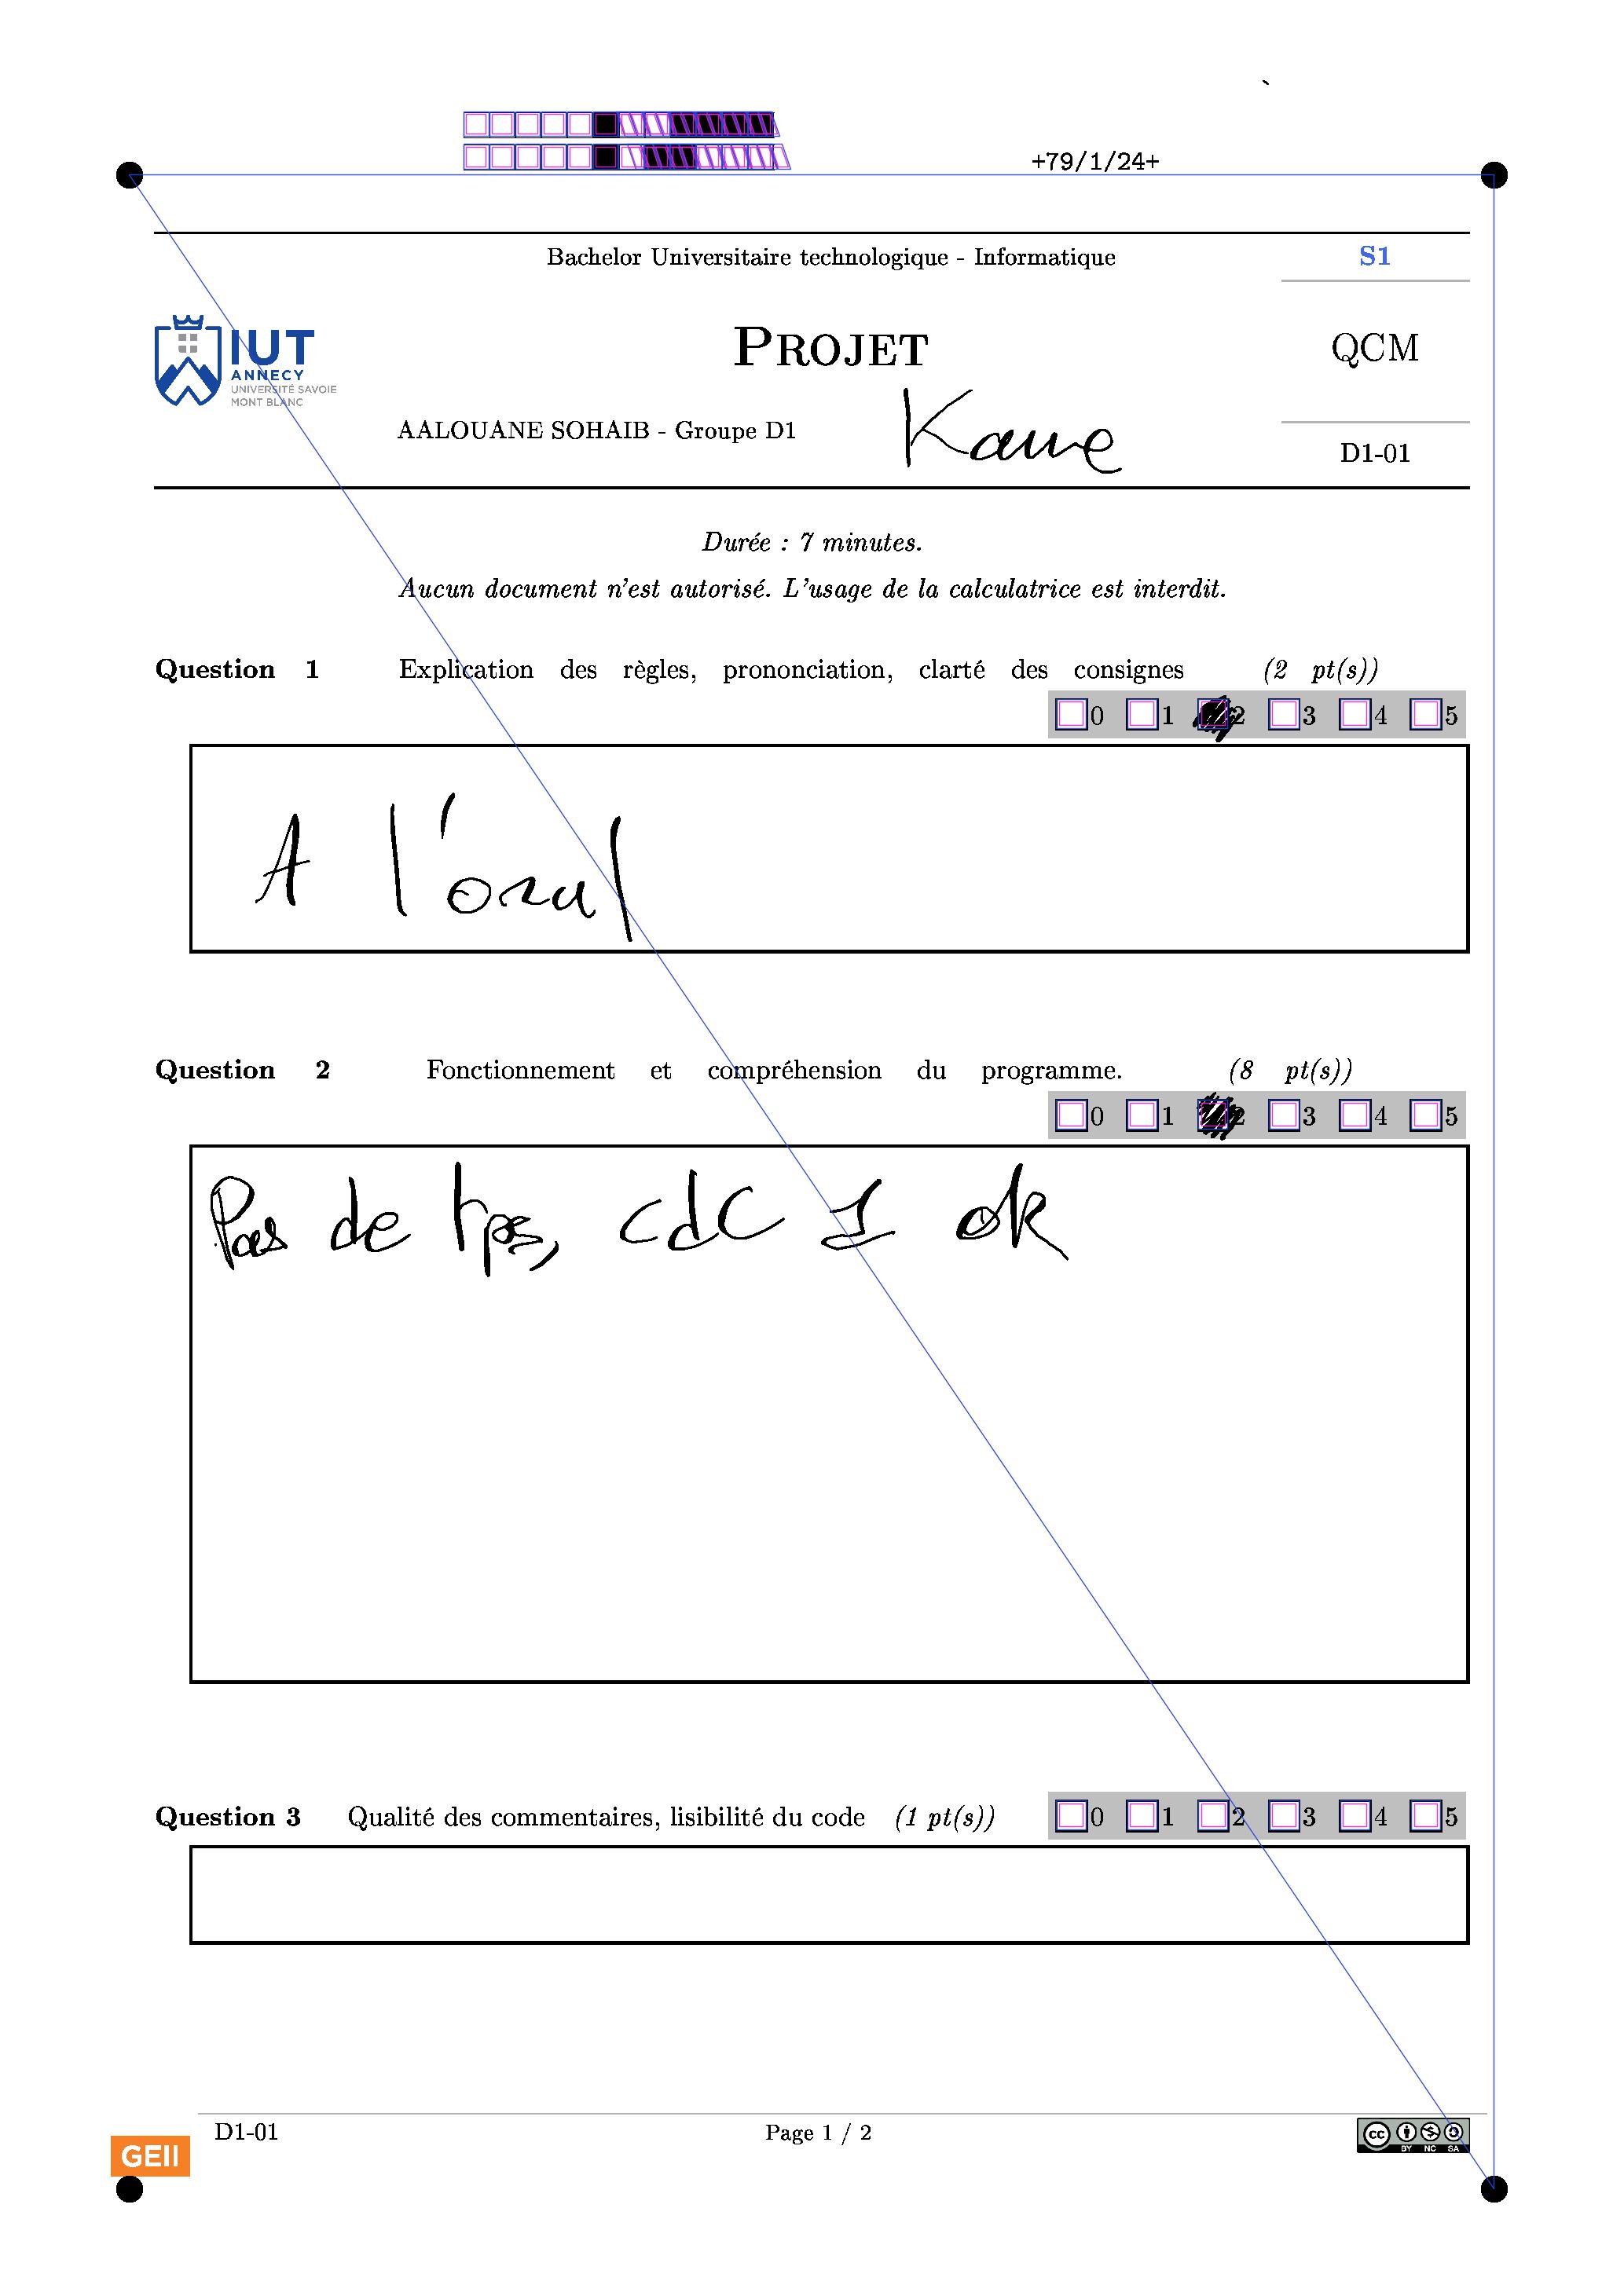 +79/1/24+
Bachelor Universitaire technologique - Informatique
S1
IUT
ANNECY
UNIVERSITÉ SAVOIE
MONT BLANC
PROJET
QCM
AALOUANE SOHAIB - Groupe D1
D1-01
Durée : 7 minutes.
Aucun document n'est autorisé. L'usage de la calculatrice est interdit.
Question 1 Explication des règles, prononciation, clarté des consignes (2 pt(s))
0 1 2 3 4 5
A l'oral
Question 2 Fonctionnement et compréhension du programme. (8 pt(s))
0 1 2 3 4 5
Pas de tps, cdc 1 ok
Question 3 Qualité des commentaires, lisibilité du code (1 pt(s)) 0 1 2 3 4 5
D1-01 Page 1 / 2
GEII
cc BY NC SA